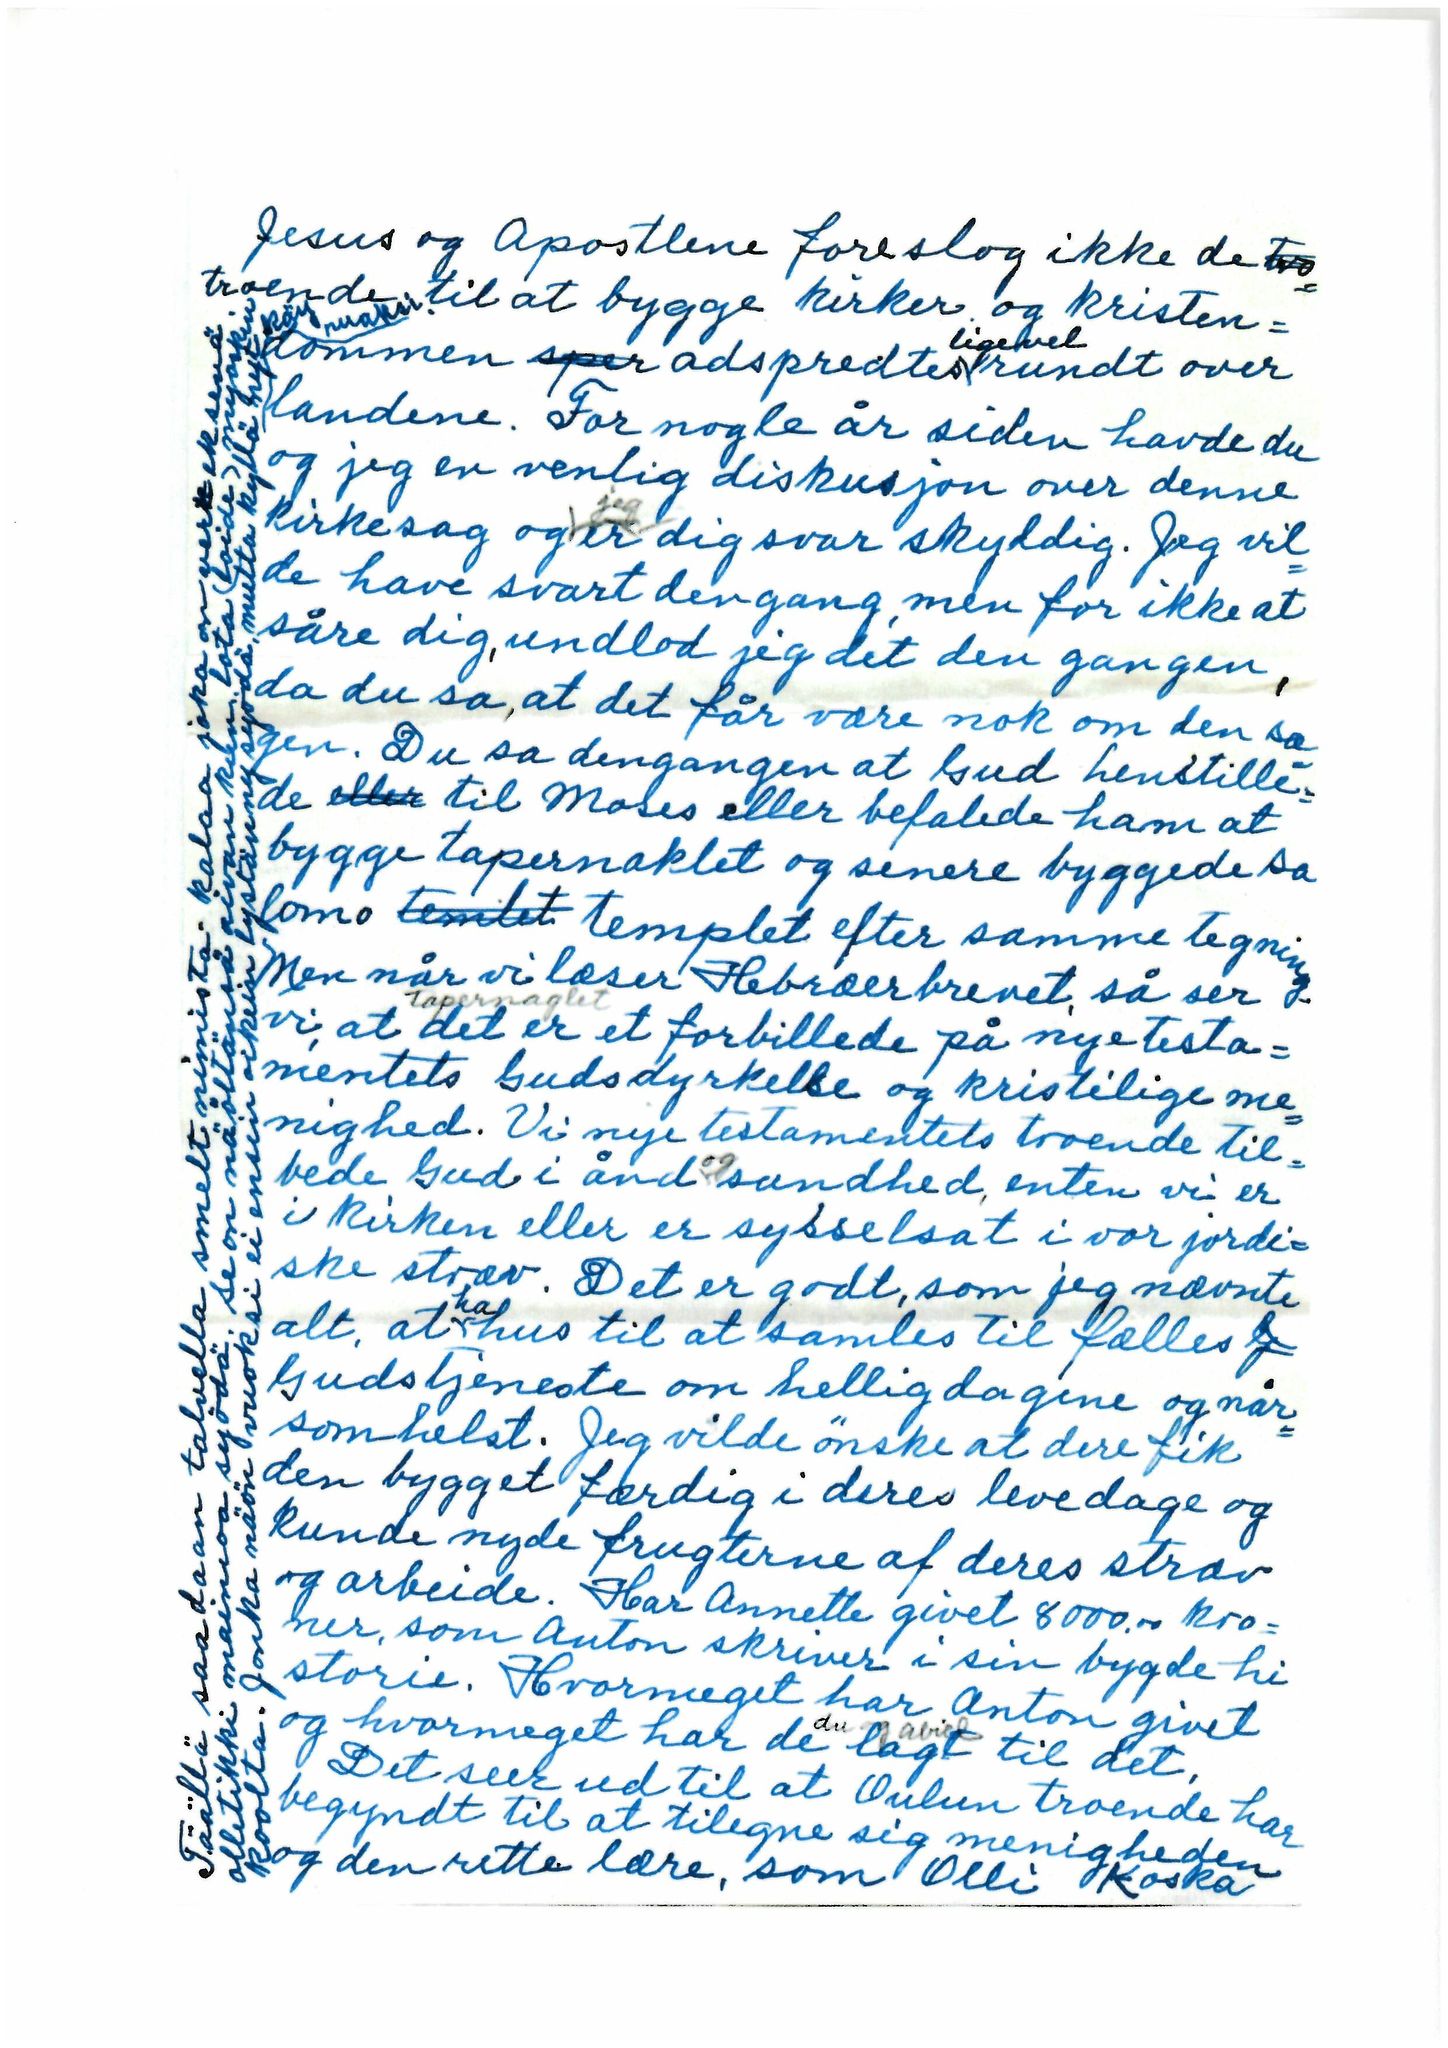 Jesus og Apostlene foreslog ikke de tro=
troende til at bygge kirker og kristen=
dommen sper adspredtes ligevel rundt over
landene. For nogle år siden havde du
og jeg en venlig diskusjon over denne
kirkesag og jeg er dig svar skyldig. Jeg vil=
de have svart dengang, men for ikke at
såre dig, undlod jeg det den gangen,
da du sa, at det får være nok om den sa=
gen. Du sa dengangen at Gud henstille=
de eller til Moses eller befalede ham at
bygge tapernaklet og senere byggede Sa
lomo temlet templet efter samme tegning.
Men når vi læser Hebræerbrevet, så ser
vi, at tapernaglet det er et forbillede på nye testa=
mentets Gudsdyrkelse og kristilige me=
nighed. Vi nye testamentets troende til=
bede Gud i ånd og sandhed, enten vi er
i kirken eller er sysselsat i vor jordi=
ske stræv. Det er godt, som jeg nævnte
alt, at ha hus til at samles til fælles G
Gudstjeneste om helligdagene og når=
somhelst. Jeg vilde ønske at dere fik
den bygget færdig i deres levedage og
kunde nyde frugterne af deres stræv
og arbeide. Har Annette givet 8000,00 kro=
ner, som Anton skriver i sin bygdehi
storie. Hvormeget har Anton givet
og hvormeget har de du lagt til det.
Det seer ud til at Oulun troende har
begyndt til at tilegne sig menigheden
og den rette lære, som Olli Koska
Täällä saadaan talvella smelt nimistä kalaa joka on
olletikki mainioa syödä. se on näöltänsä aivan kuin lota (loide)
koolta. Jonka näön vuoksi ei ensin oikein lystänny syödä, mutta kyllä nyt
käy